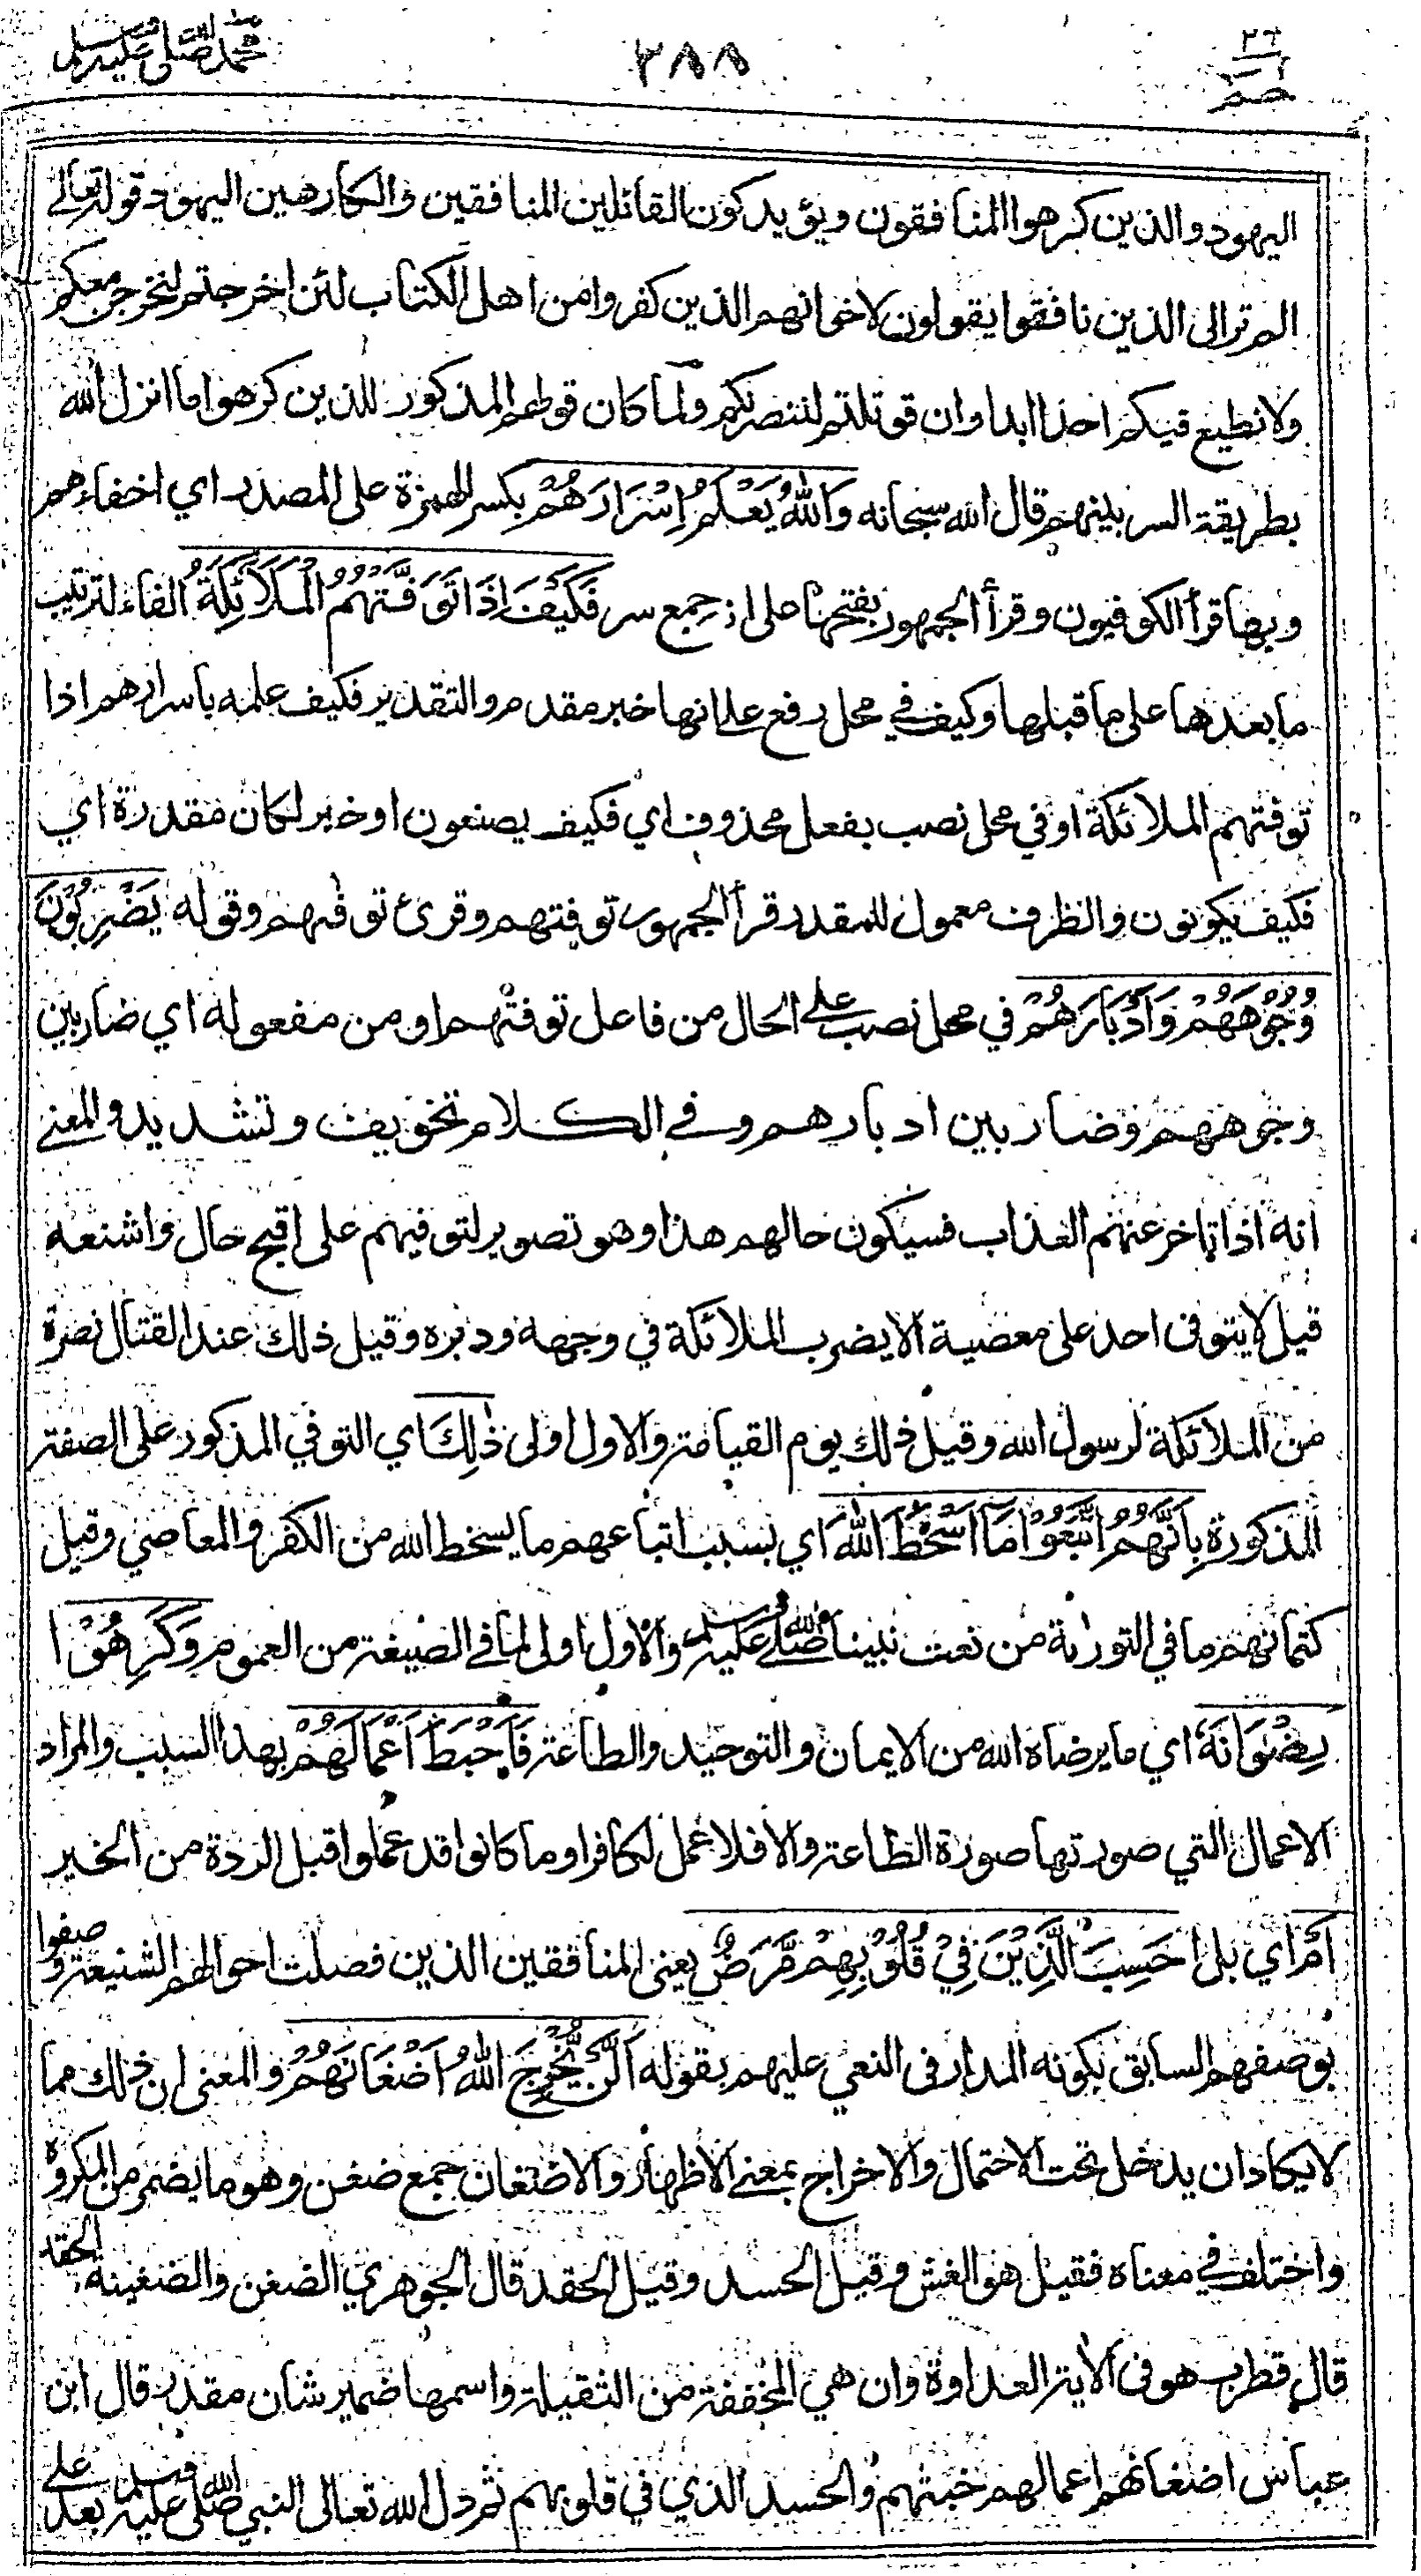 ٢٦
حم
٢٨٨
محمد صلى الله عليه وسلم
اليهود والذين كرهوا المنافقون ويؤيد كون القائلين المنافقين والكارهين اليهود قوله تعالى
الم تر الى الذين نافقوا يقولون لاخوانهم الذين كفروا من اهل الكتاب لئن اخرجتم لنخرجن معكم
ولا نطيع فيكم احدا ابدا وان قوتلتم لننصرنكم ولما كان قولهم المذكور للذين كرهوا ما انزل الله
بطريقة السر بينهم قال الله سبحانه وَاللهُ يَعْلَمُ اِسْرَارَهُمْ بكسر الهمزة على المصدر اي اخفاءهم
وبها قرأ الكوفيون وقرأ الجمهور بفتحها على انه جمع سر فَكَيْفَ اِذَا تَوَفَّتْهُمُ الْمَلَائِكَةُ الفاء لترتيب
ما بعدها على ما قبلها وكيف في محل رفع على انها خبر مقدم والتقدير فكيف علمه باسرارهم اذا
توفتهم الملائكة او في محل نصب بفعل محذوف اي فكيف يصنعون او خبر لكان مقدرة اي
فكيف يكونون والظرف معمول للمقدر قرأ الجمهور توفتهم وقرئ توفهم وقوله يَضْرِبُوْنَ
وُجُوْهَهُمْ وَاَدْبَارَهُمْ في محل نصب على الحال من فاعل توفتهم او من مفعوله اي ضاربين
وجوههم وضاربين ادبارهم وفي الكلام تخويف وتشديد والمعنى
انه اذا تاخر عنهم العذاب فسيكون حالهم هذا وهو تصوير لتوفيهم على اقبح حال واشنعه
قيل لا يتوفى احد على معصية الا يضرب الملائكة في وجهه ودبره وقيل ذلك عند القتال نصرة
من الملائكة لرسول الله وقيل ذلك يوم القيامة والاول اولى ذٰلِكَ اي التوفي المذكور على الصفة
المذكورة بِاَنَّهُمُ اتَّبَعُوْا مَا اَسْخَطَ اللهَ اي بسبب اتباعهم ما يسخط الله من الكفر والمعاصي وقيل
كتمانهم ما في التوراة من نعت نبينا صلى الله عليه وسلم والاول اولى لما في الصيغة من العموم وَكَرِهُوْا
رِضْوَانَهٗ اي ما يرضاه الله من الايمان والتوحيد والطاعة فَاَحْبَطَ اَعْمَالَهُمْ بهذا السبب والمراد
الاعمال التي صورتها صورة الطاعة والا فلا عمل لكافر او ما كانوا قد عملوا قبل الردة من الخير
اَمْ اي بل ا حَسِبَ الَّذِيْنَ فِيْ قُلُوْبِهِمْ مَّرَضٌ يعني المنافقين الذين فصلت احوالهم الشنيعة وصفوا
بوصفهم السابق بكونه المدار في النعي عليهم بقوله اَنْ لَّنْ يُّخْرِجَ اللهُ اَضْغَانَهُمْ والمعنى ان ذلك مما
لا يكاد ان يدخل تحت الاحتمال والاخراج بمعنى الاظهار والاضغان جمع ضغن وهو ما يضمر من المكروه
واختلف في معناه فقيل هو الغش وقيل الحسد وقيل الحقد قال الجوهري الضغن والضغينه الحقد
قال قطرب هو في الاية العداوة وان هي المخففة من الثقيلة واسمها ضمير شان مقدر قال ابن
عباس اضغانهم اعمالهم خبثهم والحسد الذي في قلوبهم ثم دل الله تعالى النبي صلى الله عليه وسلم بعد على